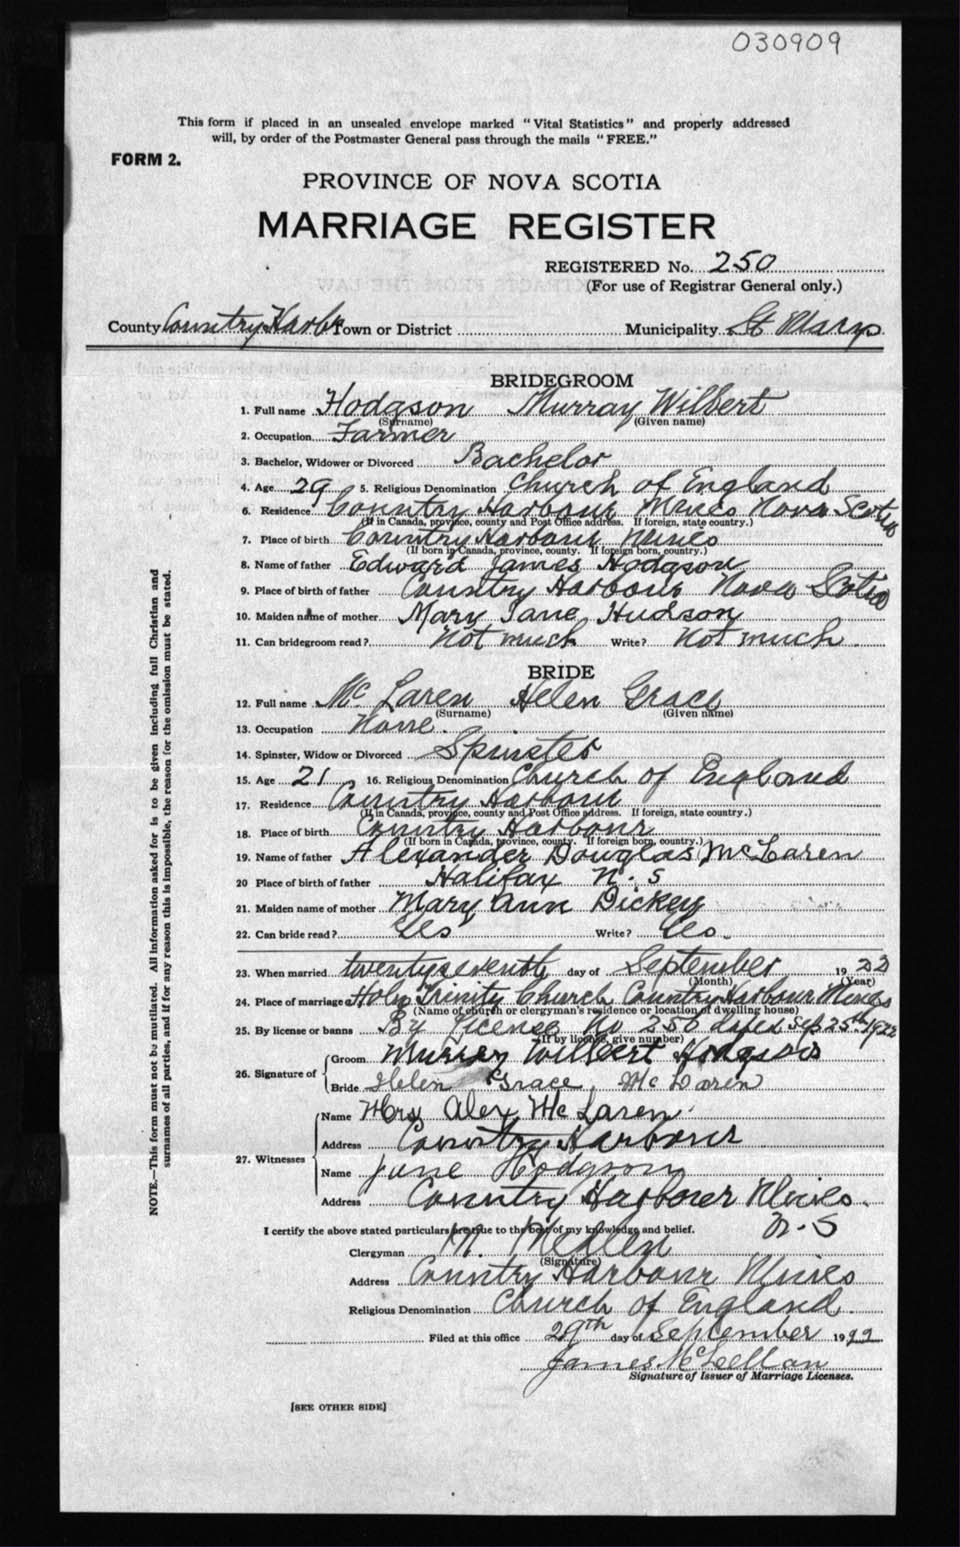 030909
This form if placed in an unsealed envelope marked "Vital Statistics" and properly addressed
will, by order of the Postmaster General pass through the mails "FREE."
FORM 2.
PROVINCE OF NOVA SCOTIA
MARRIAGE REGISTER
REGISTERED No. 250
(For use of Registrar General only.)
County Country Harbr Town or District Municipality St Marys
BRIDEGROOM
1. Full name Hodgson Murray Wilbert
(Surname) (Given name)
2. Occupation Farmer
3. Bachelor, Widower or Divorced Bachelor
4. Age 29 5. Religious Denomination Church of England
6. Residence Country Harbour Mines Nova Scotia
(If in Canada, province, county and Post Office address. If foreign, state country.)
7. Place of birth Country Harbour Mines
(If born in Canada, province, county. If foreign born, country.)
8. Name of father Edward James Hodgson
9. Place of birth of father Country Harbour Nova Scotia
10. Maiden name of mother Mary Jane Hudson
11. Can bridegroom read? Not much Write? Not much
BRIDE
12. Full name Mc Laren Helen Grace
(Surname) (Given name)
13. Occupation None
14. Spinster, Widow or Divorced Spinster
15. Age 21 16. Religious Denomination Church of England
17. Residence Country Harbour
(If in Canada, province, county and Post Office address. If foreign, state country.)
18. Place of birth Country Harbour
(If born in Canada, province, county. If foreign born, country.)
19. Name of father Alexander Douglas McLaren
20 Place of birth of father Halifax N.S
21. Maiden name of mother Mary Ann Dickey
22. Can bride read? Yes Write? Yes.
23. When married twentyseventh day of September 1922
(Month) (Year)
24. Place of marriage Holy Trinity Church Country Harbour Mines
(Name of church or clergyman's residence or location of dwelling house)
25. By license or banns By License No 250 dated Sep 25th 1922
(If by license, give number)
26. Signature of Groom Murray Wilbert Hodgson
Bride Helen Grace McLaren
27. Witnesses Name Mrs Alex McLaren
Address Country Harbour
Name Jane Hodgson
Address Country Harbour Mines.
N.S
I certify the above stated particulars are true to the best of my knowledge and belief.
Clergyman
(Signature)
Address Country Harbour Mines
Religious Denomination Church of England
Filed at this office 29th day of September 1922
James McLellan
Signature of Issuer of Marriage Licenses.
[SEE OTHER SIDE]
NOTE.—This form must not be mutilated. All information asked for is to be given including full Christian and
surnames of all parties, and if for any reason this is impossible, the reason for the omission must be stated.